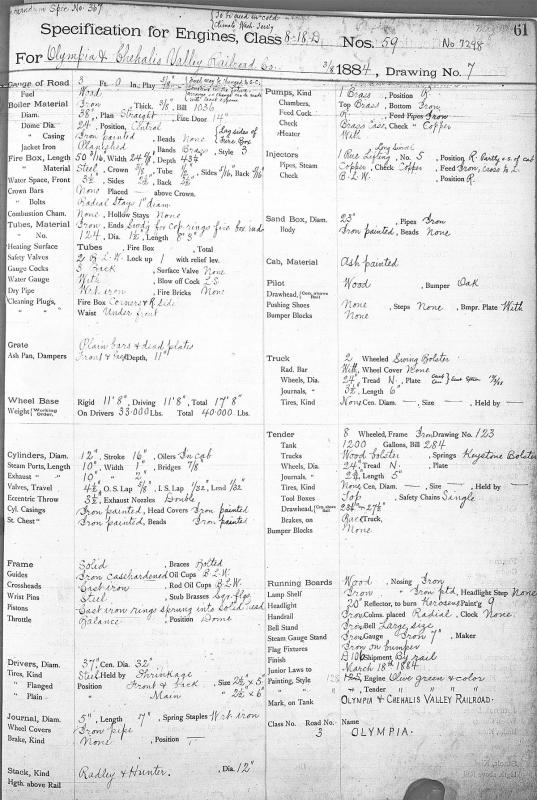 Memorandum Spec No. 367
To be used in cold
climate Wash. Terr'y
61
Specification for Engines, Class 8-18 D
Nos. 59
No 7298
For Olympia & Chehalis Valley Railroad Co.
3/8 1884, Drawing No. 7
Gauge of Road 3 Ft. 0 In.; Play
Fuel Wood
Boiler Material Iron Thick. 3/8, Bill 1036
Diam. 38, Plan Straight, Fire Door 14"
Dome Dia. 24, Position, Central
" Casing Iron painted Heads None
Lag sides of Fire Box
Jacket Iron Planished Bands Brass, Style 3
Fire Box, Length 50 3/16, Width 24 7/8, Depth 43 1/4
" Material Steel, Crown 3/8 Tube 1/2, Sides 5/16, Back 5/16
Water Space, Front 3 1/2", Sides 2 1/2", Back 2 1/2"
Crown Bars None Placed — above Crown.
" Bolts Radial Stays 1" diam.
Combustion Cham. None, Hollow Stays None
Tubes, Material Iron, Ends Swdg for Cop rings fire box ends
" No. 124, Dia. 1 1/2", Length 8' 3"
Heating Surface Tubes , Fire Box , Total
Safety Valves 2 B.L.W. Lock up 1 with relief lev.
Gauge Cocks 3 Back , Surface Valve None
Water Gauge With , Blow off Cock L.S.
Dry Pipe Wrt. iron , Fire Bricks None
Cleaning Plugs, Fire Box Corners & R. Side
" " " Waist Under front
Grate Plain bars & dead plates
Ash Pan, Dampers Front & back Depth, 11"
Wheel Base Rigid 11' 8", Driving 11' 8", Total 17' 8"
Weight (Working Order, On Drivers 33.000 Lbs. Total 40.000 Lbs.
Cylinders, Diam. 12", Stroke 16", Oilers In cab
Steam Ports, Length 10", Width 1", Bridges 7/8
Exhaust " " 10" " 2"
Valves, Travel 4 1/2, O. S. Lap 5/8, I. S. Lap 1/32, Lead 1/32"
Eccentric Throw 3 1/2, Exhaust Nozzles Double
Cyl. Casings Iron painted, Head Covers Iron painted
St. Chest " Iron painted, Beads Iron painted
Frame Solid , Braces Bolted
Guides Iron casehardened Oil Cups B.L.W.
Crossheads Cast iron Rod Oil Cups B.L.W.
Wrist Pins Steel , Stub Brasses Sqr. flge.
Pistons Cast iron rings sprung into solid head
Throttle Balance , Position Dome
Drivers, Diam. 37", Cen. Dia. 32"
Tires, Kind Steel Held by Shrinkage
" Flanged Position Front & back Size 2 1/2" x 5"
" Plain " Main " 2 1/2" x 6"
Journal, Diam. 5", Length 7", Spring Staples Wrt. iron
Wheel Covers Iron pipe
Brake, Kind None , Position —
Stack, Kind Radley & Hunter. , Dia. 12"
Hgth. above Rail
Pumps, Kind 1 Brass , Position R.
Chambers, Top Brass, Bottom Iron
Feed Cock R. Feed Pipes Iron
Check Brass Case, Check " Copper
" Heater With
Injectors 1 Rue Lifting, No. 5 , Position R.
Pipes, Steam Copper, Check Copper, Feed Iron,
Check B.L.W. , Position R.
Sand Box, Diam. 23" , Pipes Iron
Body Iron painted, Beads None
Cab, Material Ash painted
Pilot Wood , Bumper Oak
Drawhead, (Cen. above Rail
Pushing Shoes None , Steps None, Bmpr. Plate With
Bumper Blocks None
Truck 2 Wheeled Swing Bolster
Rad. Bar With, Wheel Cover None
Wheels, Dia. 24", Tread N., Plate
Journals, " 3 1/2, Length 6"
Tires, Kind None Cen. Diam. —, Size —, Held by —
Tender 8 Wheeled, Frame Iron Drawing No. 123
Tank 1200 Gallons, Bill 284
Trucks Wood bolster , Springs Keystone Bolster
Wheels, Dia. 24", Tread N. , Plate
Journals, " 2 3/4, Length 5"
Tires, Kind None Cen. Diam. —, Size —, Held by —
Tool Boxes Top , Safety Chains Single
Drawhead, (Cen. above Rail 23 1/2" & 27 1/2"
Brakes, on Back Truck,
Bumper Blocks None
Running Boards Wood , Nosing Iron
Lamp Shelf Iron , " Iron ptd, Headlight Step None
Headlight 20" Reflector, to burn Kerosene Paint'g 9
Handrail Iron Colms. placed Radial, Clock None
Bell Stand Iron Bell Large size
Steam Gauge Stand Iron Gauge Iron 7", Maker
Flag Fixtures Iron on bumper
Finish D 106 Shipment By rail
Junior Laws to March 18th 1884
Painting, Style 125, Engine Olive green & color
" " " ", Tender " " "
Mark, on Tank OLYMPIA & CHEHALIS VALLEY RAILROAD.
Class No. Road No. Name
3 OLYMPIA.